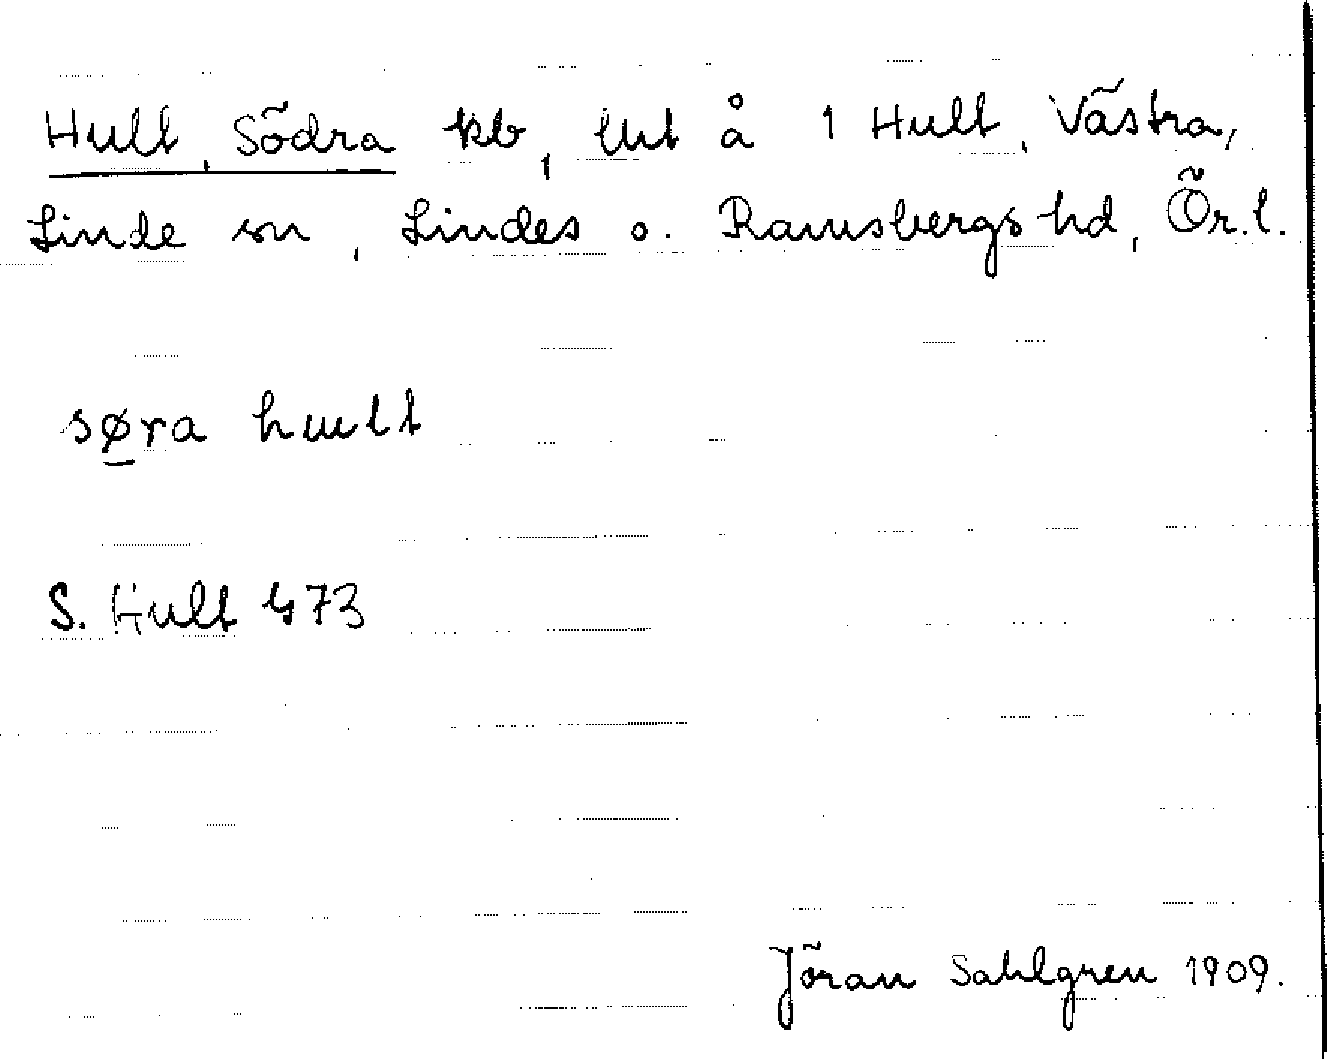 Hult, Södra kb, lht å 1 Hult, Västra,
Linde sn, Lindes o. Ramsbergs hd, Ör. l.
søra hult
S. Hult 473
Jöran Sahlgren 1909.